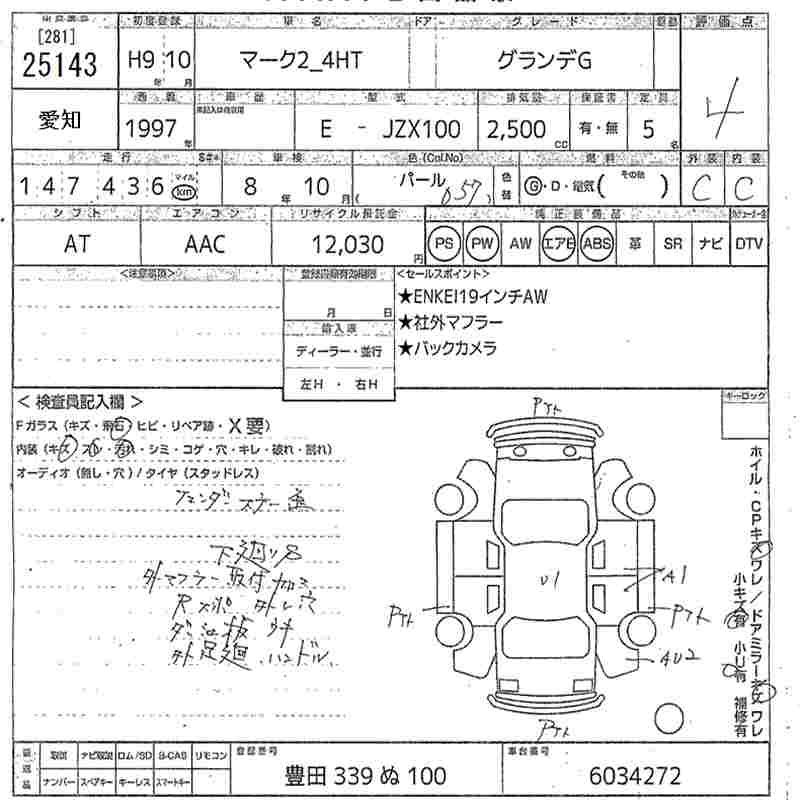 [281]
25143
初度登録
H9 年 10 月
車名
マーク2_4HT
ドア
グレード
グランデG
評価点
4
愛知
西暦
1997 年
車歴
型式
E - JZX100
排気量
2,500 cc
保証書
有・無
定員
5 名
走行
147436 マイル km
車検
8 年 10 月
色(Col.No)
パール 057
色替
燃料
G・D・電気( その他 )
外装
C
内装
C
シフト
AT
エアコン
AAC
リサイクル預託金
12,030 円
純正装備品
PS PW AW エアB ABS 革 SR ナビ DTV
<注意事項>
登録書類有効期限
月 日
輸入車
ディーラー・並行
左H ・ 右H
<セールスポイント>
★ENKEI19インチAW
★社外マフラー
★バックカメラ
< 検査員記入欄 >
Fガラス (キズ・飛石・ヒビ・リペア跡・X要)
内装 (キズ・スレ・汚れ・シミ・コゲ・穴・キレ・破れ・割れ)
オーディオ (無し・穴) / タイヤ (スタッドレス)
フェンダー スナー
下廻りS
外マフラー取付加工
Rスポ 外レ穴
外足廻 ハンドル
キーロック
Pアト
U1
A1
Pアト
Pアト
AU2
Pアト
ホイル・CPキズワレ/ドアミラーキズワレ
小キズ有 小U有 補修有
返品
取説 ナビ取説 ロム/SD B-CAS リモコン
ナンバー スペアキー キーレス スマートキー
登録番号
豊田 339 ぬ 100
車台番号
6034272